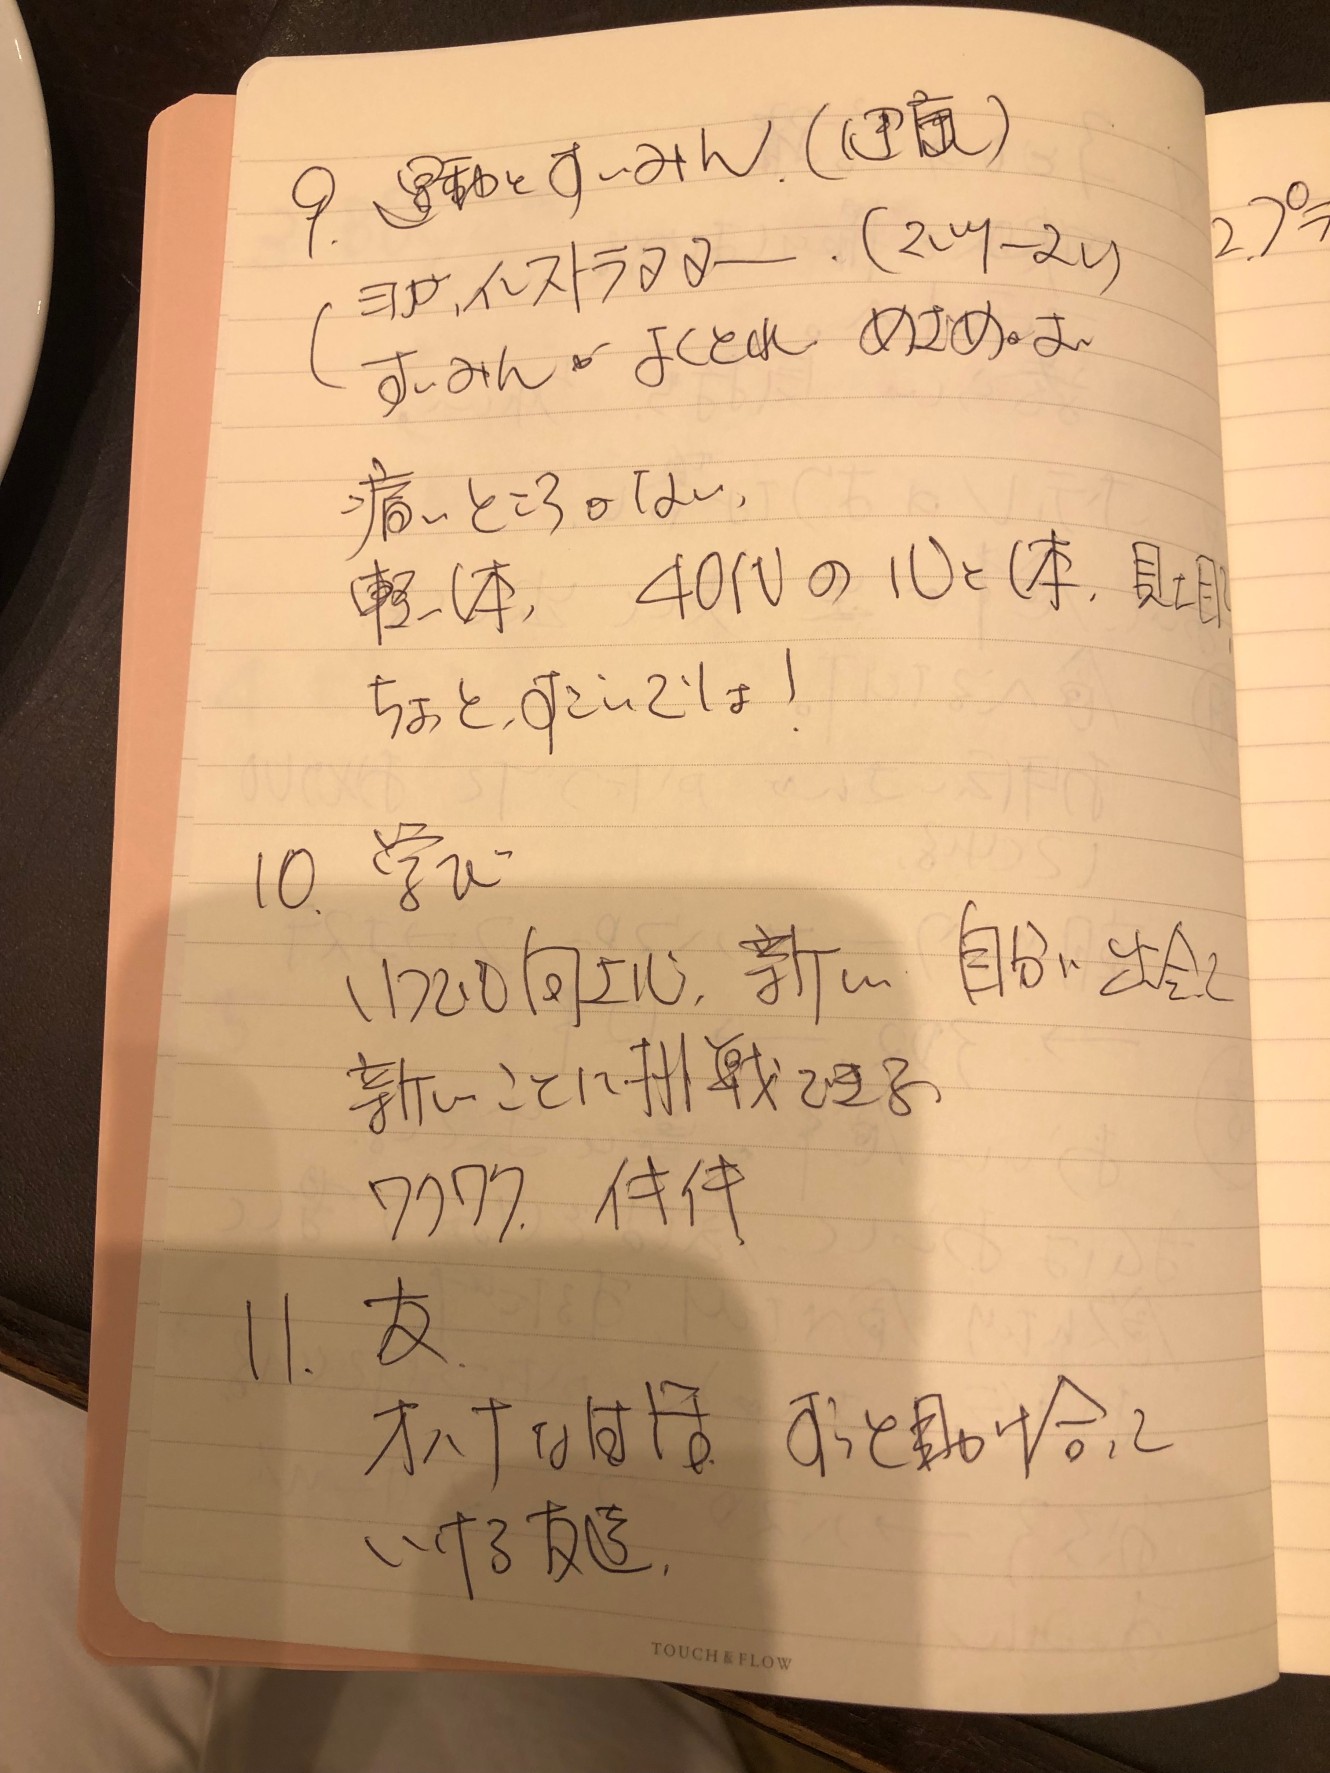 9. 運動とすいみん.(健康)
ヨガ.インストラクター.(
すいみんがよくとれ めざめがよい
痛いところがない、
軽い体、 40代の心と体、見た目、
ちょっと、すごいでしょ!
10. 学び
いつでも向上心、新しい 自分に出会って
新しいことに挑戦できる、
ワクワク.
11. 友.
オトナな関係 ずっと助け合って
いける友達.
TOUCH & FLOW